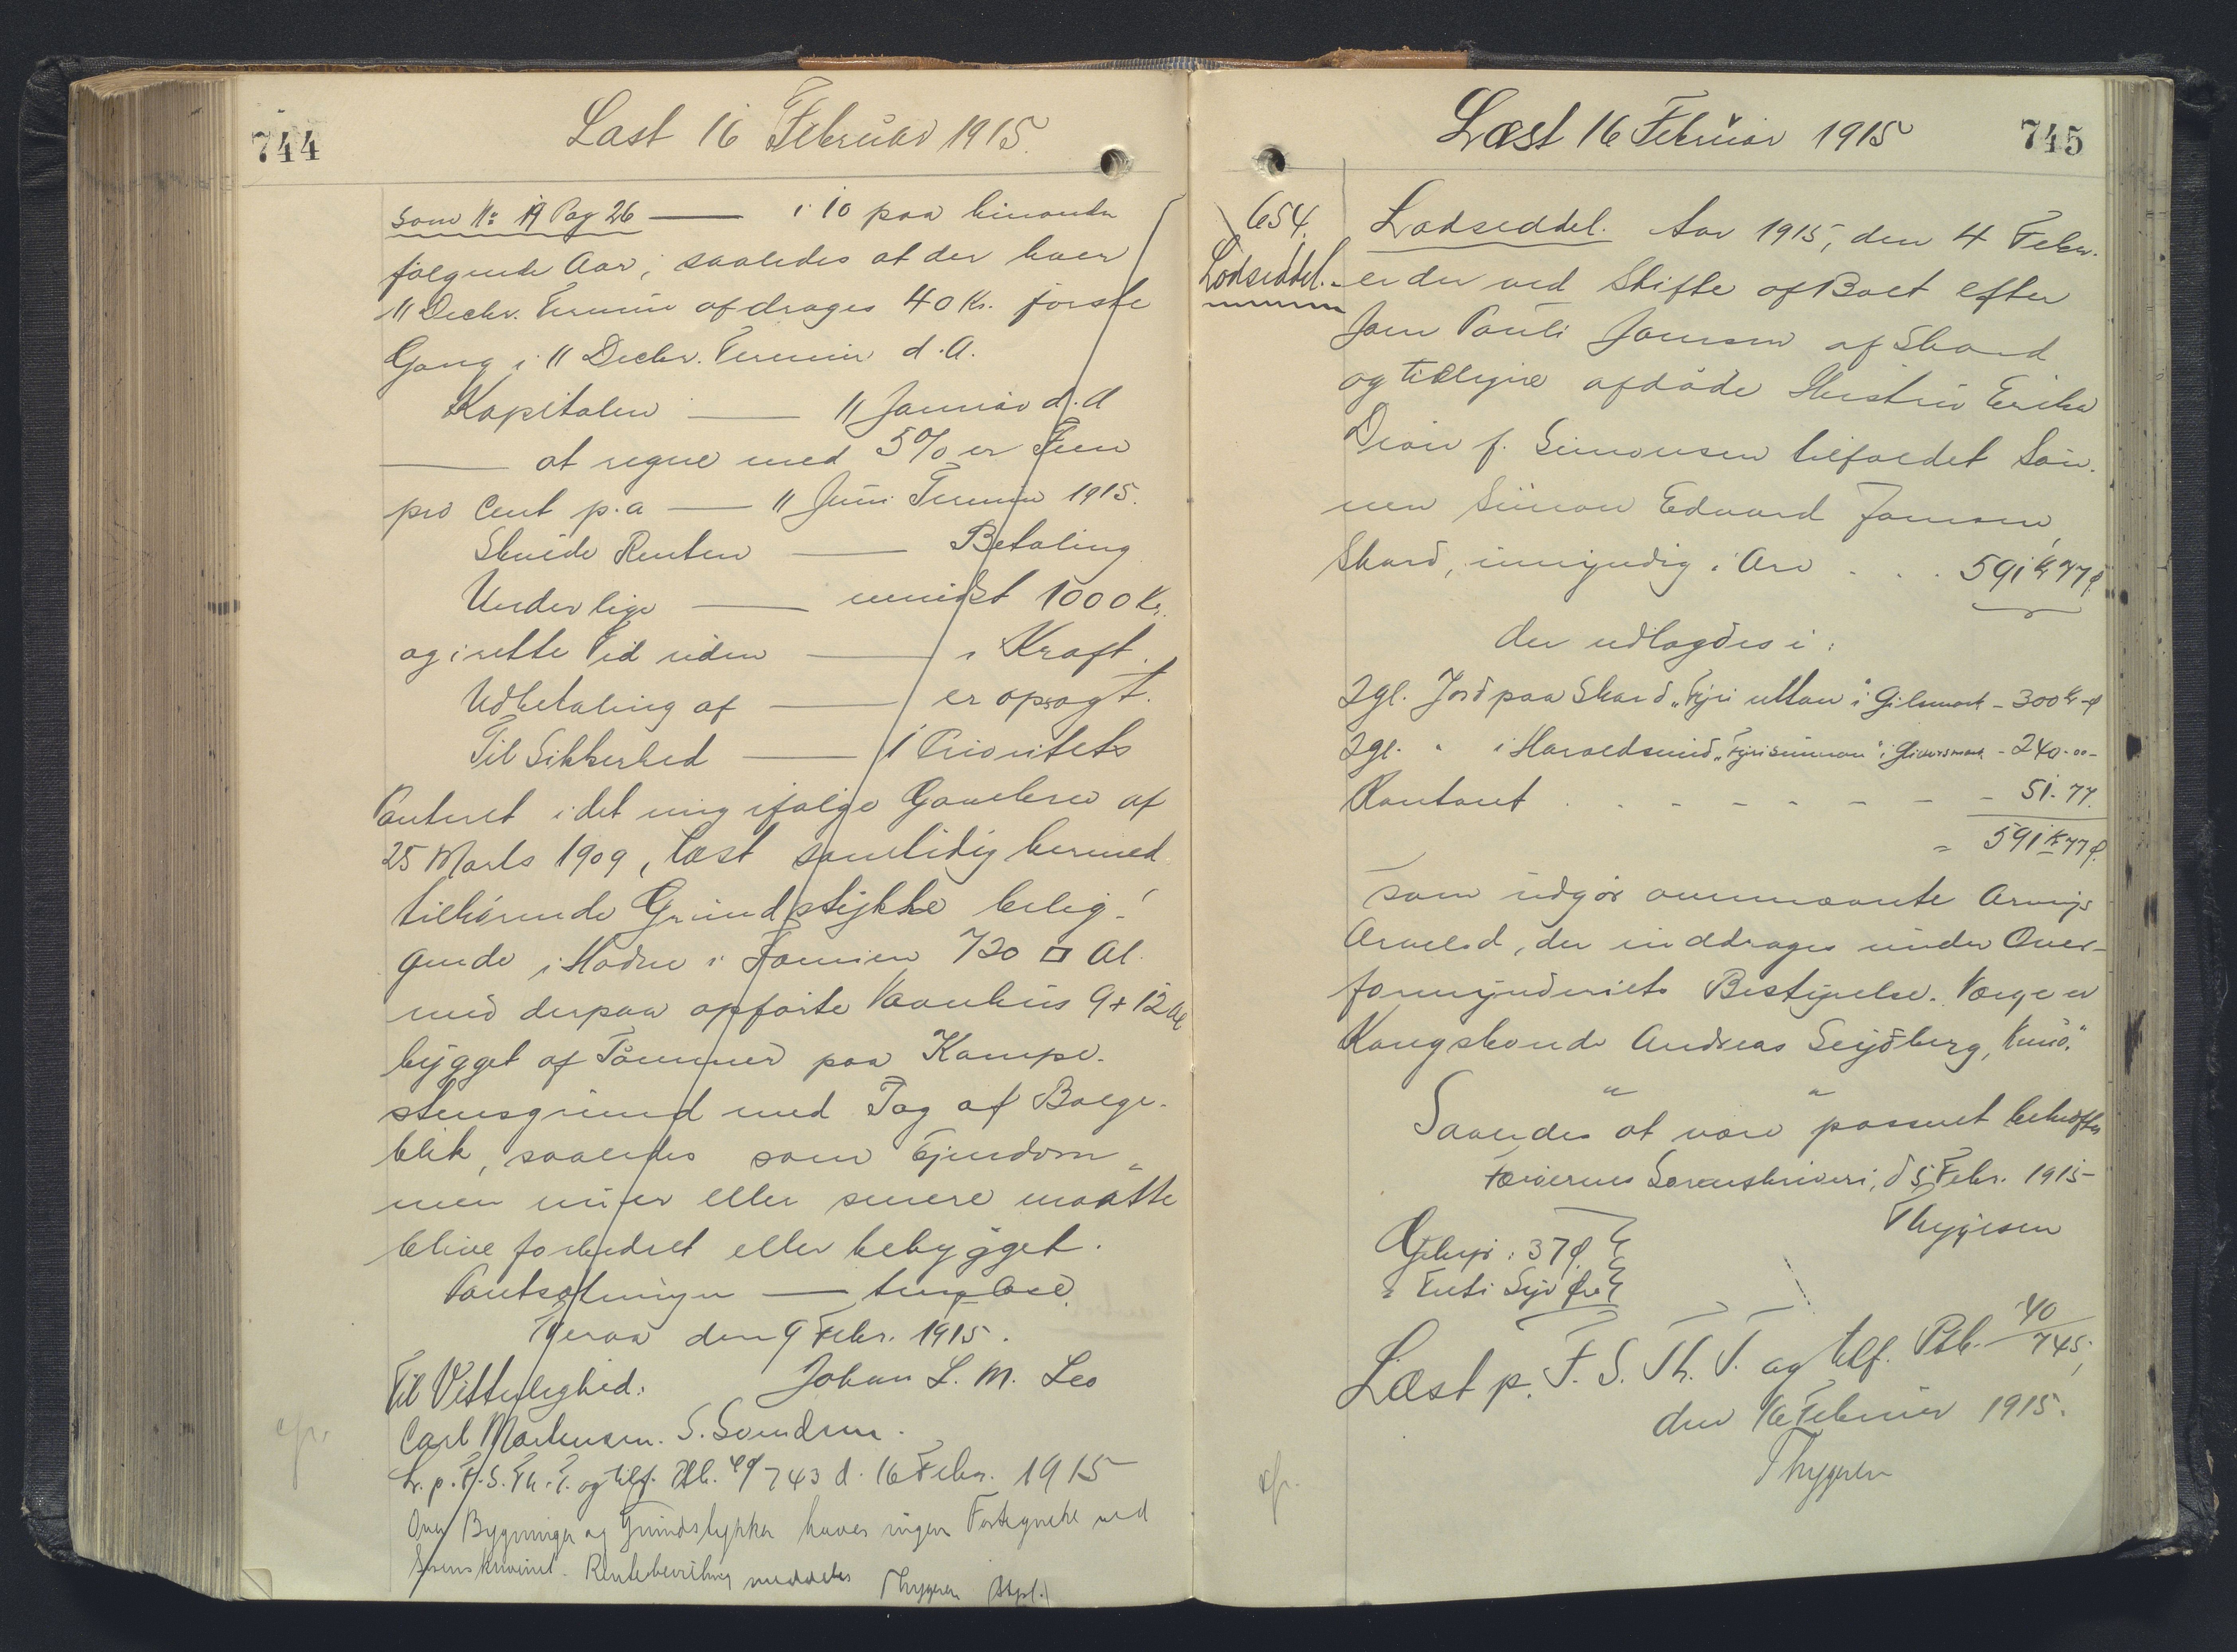 744
Læst 16 Februar 1915.
som No: 19 Pag 26 — i 10 paa hinanden
følgende Aar, saaledes at der hver
11 Decbr. Termin afdrages 40 Kr. første
Gang i 11 Decbr. Termin d.A.
Kapitalen — 11 Januar d.A
— at regne med 5% er Fem
pro Cent p.a — 11 Juni Termin 1915.
Skulde Renten — Betaling
Underlige — mindst 1000 Kr.
og i rette Tid uden — i Kraft.
Udbetaling af — er opsagt.
Til Sikkerhed — 1 Prioritets
Panteret i det mig ifølge Gavebrev af
25 Marts 1909, læst samtidig hermed
tilhørende Grundstykke belig-
gende i Hadne i Famien 720 □ Al.
med derpaa opførte Vaanhus 9 + 12 Al
bygget af Tømmer paa Kampe-
stensgrund med Tag af Bølge-
blik, saaledes som Ejendom-
men nu er eller senere maatte
blive forbedret eller bebygget.
Pantsætningen — tinglæse.
Tveraa den 9 Febr. 1915.
Til Vitterlighed: Johan L. M. Leo
Carl Mortensen. S.
L. p. F. S. Th. T. og tilf. Ptb. 40/743 d. 16 Febr. 1915
Over Bygninger og Grundstykker haves ingen Fortegnelse ved
Sorenskriveriet. Rentebevilling meddeles Thygesen
745
Læst 16 Februar 1915
654.
Lodseddel.
Lodseddel. Aar 1915, den 4 Febr.
er der ved Skifte af Boet efter
Joen Pauli Joensen af Skard
og tidligere afdøde Hustru Erika
f. Simonsen tilfaldet Søn-
nen Simon Edvard Joensen,
Skard, umyndig i Arv . . . 591 Kr 77 Ø.
der udlagdes i:
2 gl. Jord paa Skard „Fyri uttan“ i Gilsmark - 300 Kr - Ø
2 gl. " i Haraldsund „Fyri sunnan“ i - 240.00 -
Kontant . . - - - - - - 51.77.
= 591 Kr 77 Ø.
som udgør ommeldte Arvings
Arvelod, der inddrages under Over-
formynderiets Bestyrelse. Værge er
Kongsbonde Andreas Seyðberg, Kunö."
" "
Saaledes at være passeret bekræftes
Færøernes Sorenskriveri, d 5 Febr. 1915
Thygesen
Gebyr: 37 Ø.
Treti Syv Øre
Læst p. F. S. Th. T. og tilf. Ptb. 40/745,
den 16 Februar 1915.
Thygesen
cfr.
cfr.